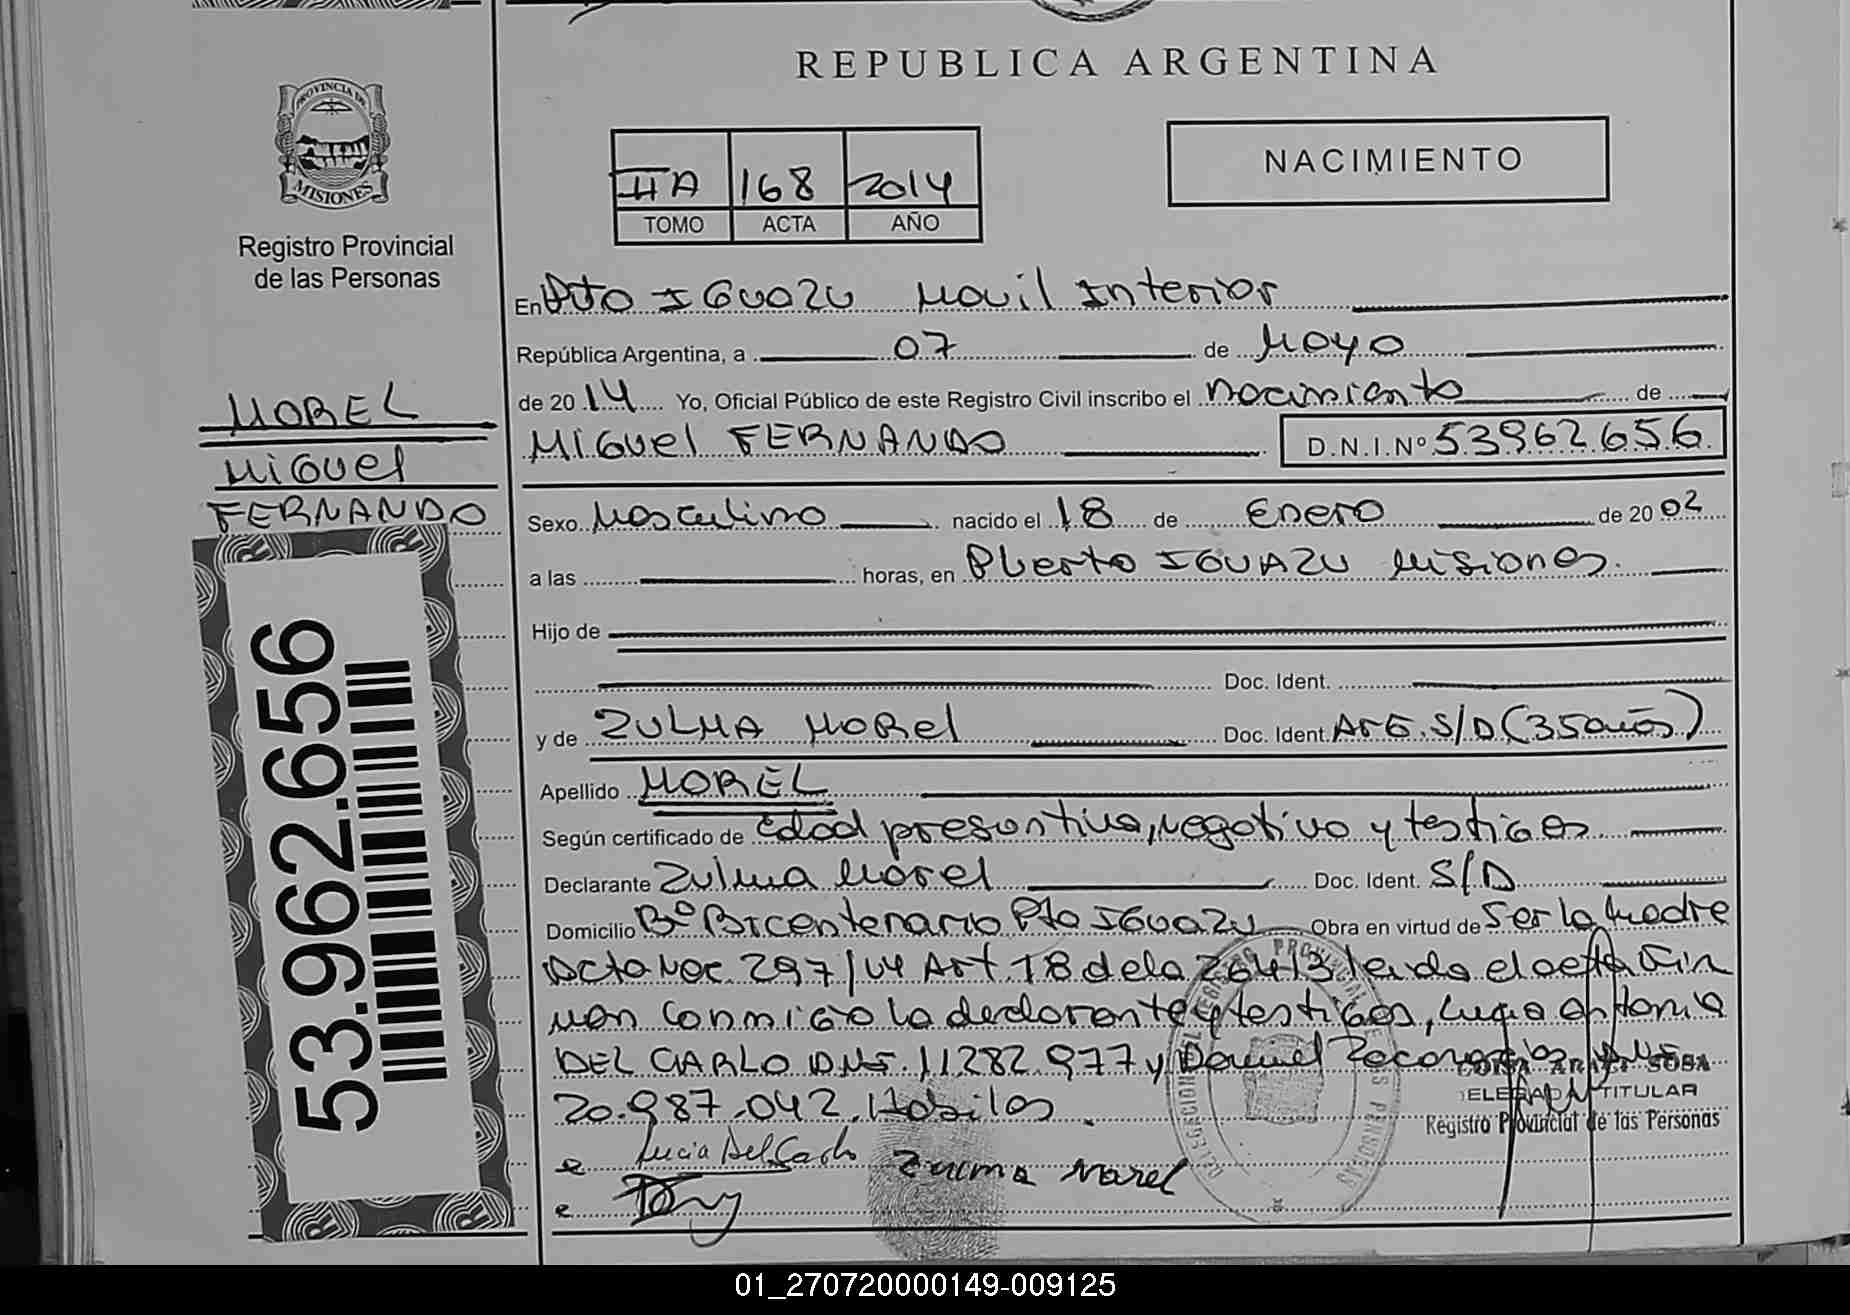 REPUBLICA ARGENTINA
PROVINCIA DE
MISIONES
Registro Provincial
de las Personas
IIA 168 2014
TOMO ACTA AÑO
NACIMIENTO
En Pto IGUAZU Movil Interior
República Argentina, a 07 de Mayo
de 2014 Yo, Oficial Público de este Registro Civil inscribo el nacimiento de
MIGUEL FERNANDO D.N.I.Nº 53962656
MOREL
MIGUEL
FERNANDO
Sexo Masculino nacido el 18 de Enero de 2002
a las horas, en Puerto IGUAZU Misiones.
Hijo de
Doc. Ident.
y de ZULMA MOREL Doc. Ident. ARG. S/D (35 años)
Apellido MOREL
Según certificado de edad presuntiva, negativo y testigos
Declarante Zulma Morel Doc. Ident. S/D
Domicilio Bº Bicentenario Pto IGUAZU Obra en virtud de Ser la Madre
Acta Nac. 297/14 Art. 18 de la 26413 leida el acta Fir
man conmigo la declarante y testigos, Lucia Antonia
DEL CARLO DNI. 11282.977 y Daniel
20.987.042. Habiles
ARACI SOSA
TITULAR
Registro Provincial de las Personas
Lucia Del Carlo
Zulma Morel
53.962.656
01_270720000149-009125